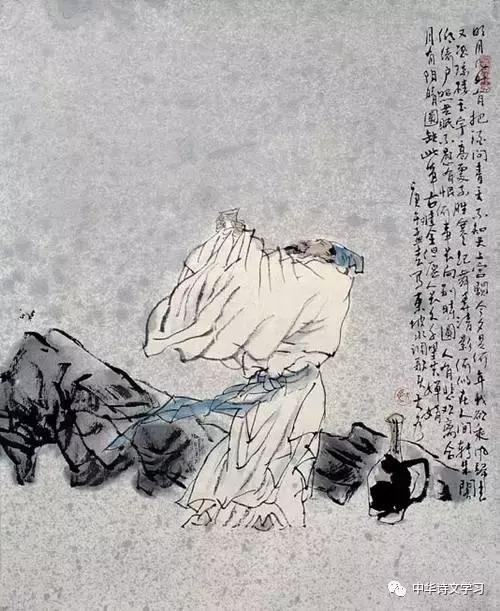 明月幾時有把酒問青天不知天上宮闕今夕是何年我欲乘風歸去
又恐瓊樓玉宇高處不勝寒起舞弄清影何似在人間轉朱閣
低綺户照無眠不應有恨何事長向别時圓人有悲歡離合
月有陰晴圓缺此事古難全但願人長久千里共嬋娟
庚午 寫東坡水調歌頭
中华诗文学习